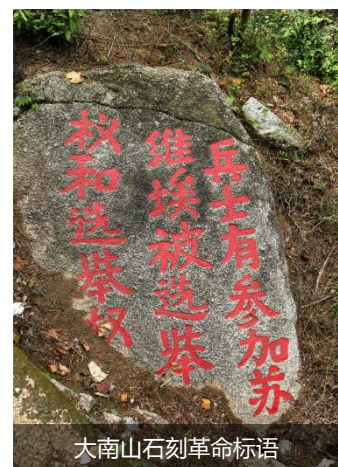 兵士有参加苏
维埃被选举
权和选举权
大南山石刻革命标语